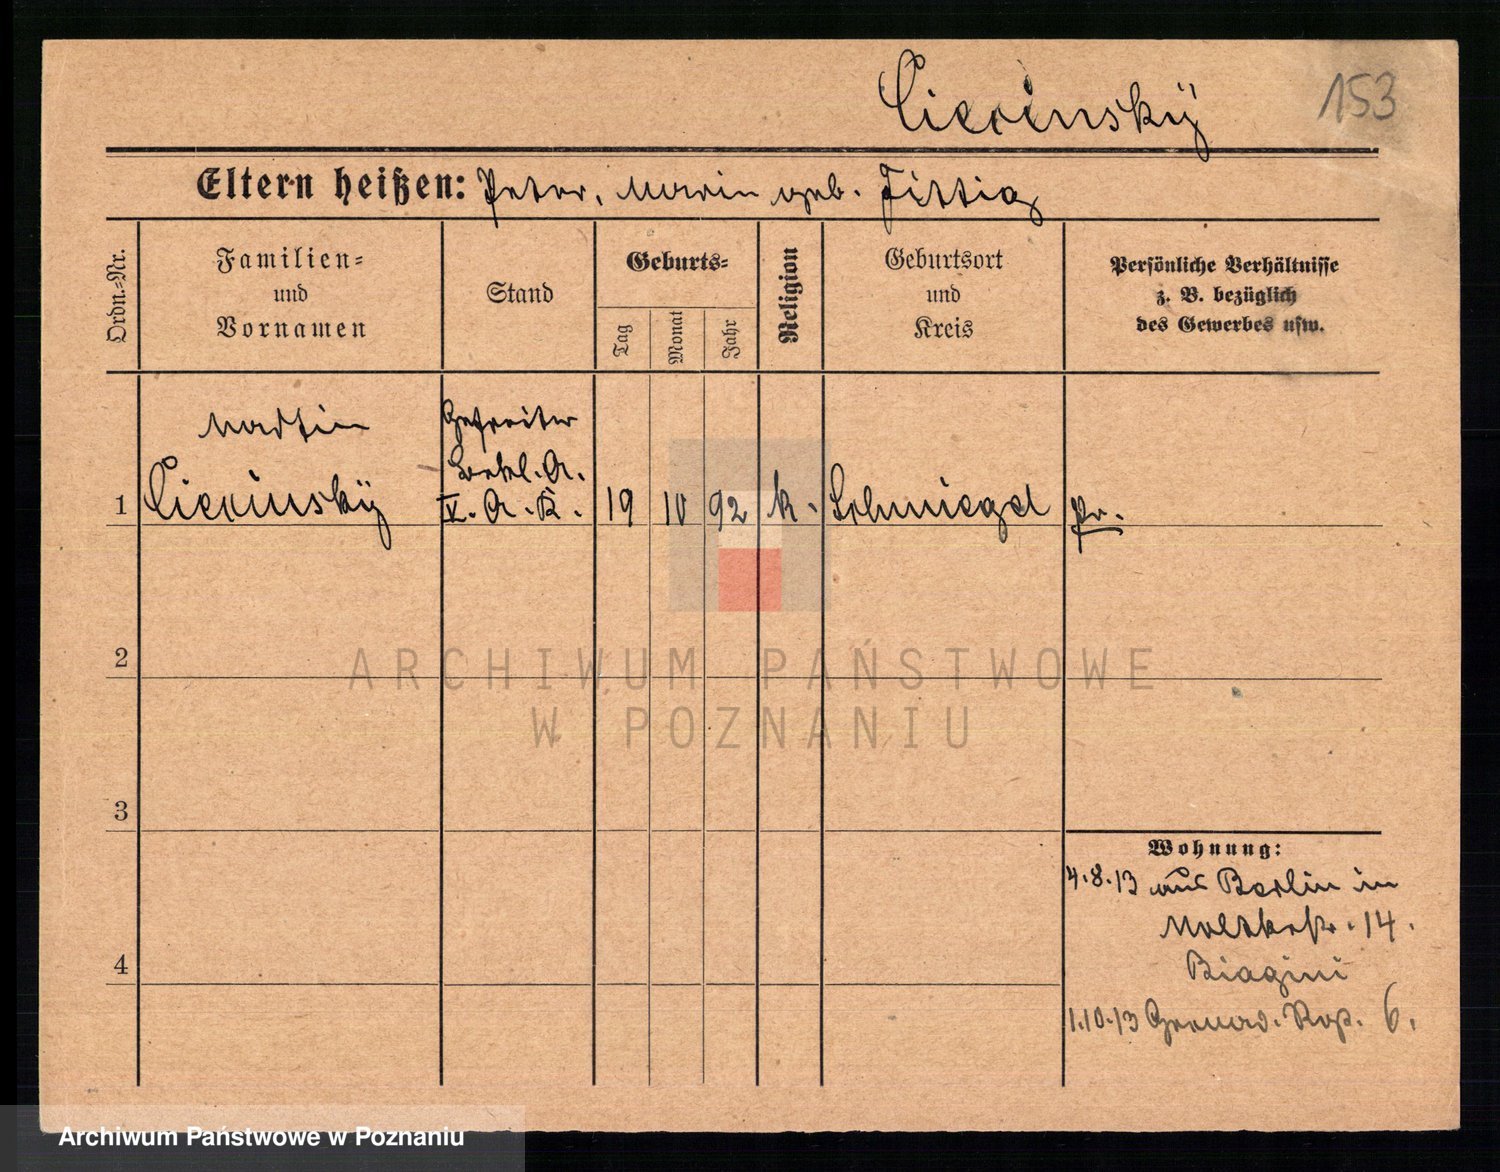 Ciexinsky
153
Eltern heißen: Peter, Marie geb. Fittig
Ordn.-Nr.
Familien-
und
Vornamen
Stand
Geburts-
Tag
Monat
Jahr
Religion
Geburtsort
und
Kreis
Persönliche Verhältnisse
z. B. bezüglich
des Gewerbes usw.
Martin
Gefreiter
V. A. K.
1 Ciexinsky 19 10 92 k. Schmiegel Pr.
2
3
4
Wohnung:
4.8.13 aus Berlin in
Moltkestr. 14.
Biagini
1.10.13 Grenad. Rgt. 6.
ARCHIWUM PAŃSTWOWE
W POZNANIU
Archiwum Państwowe w Poznaniu